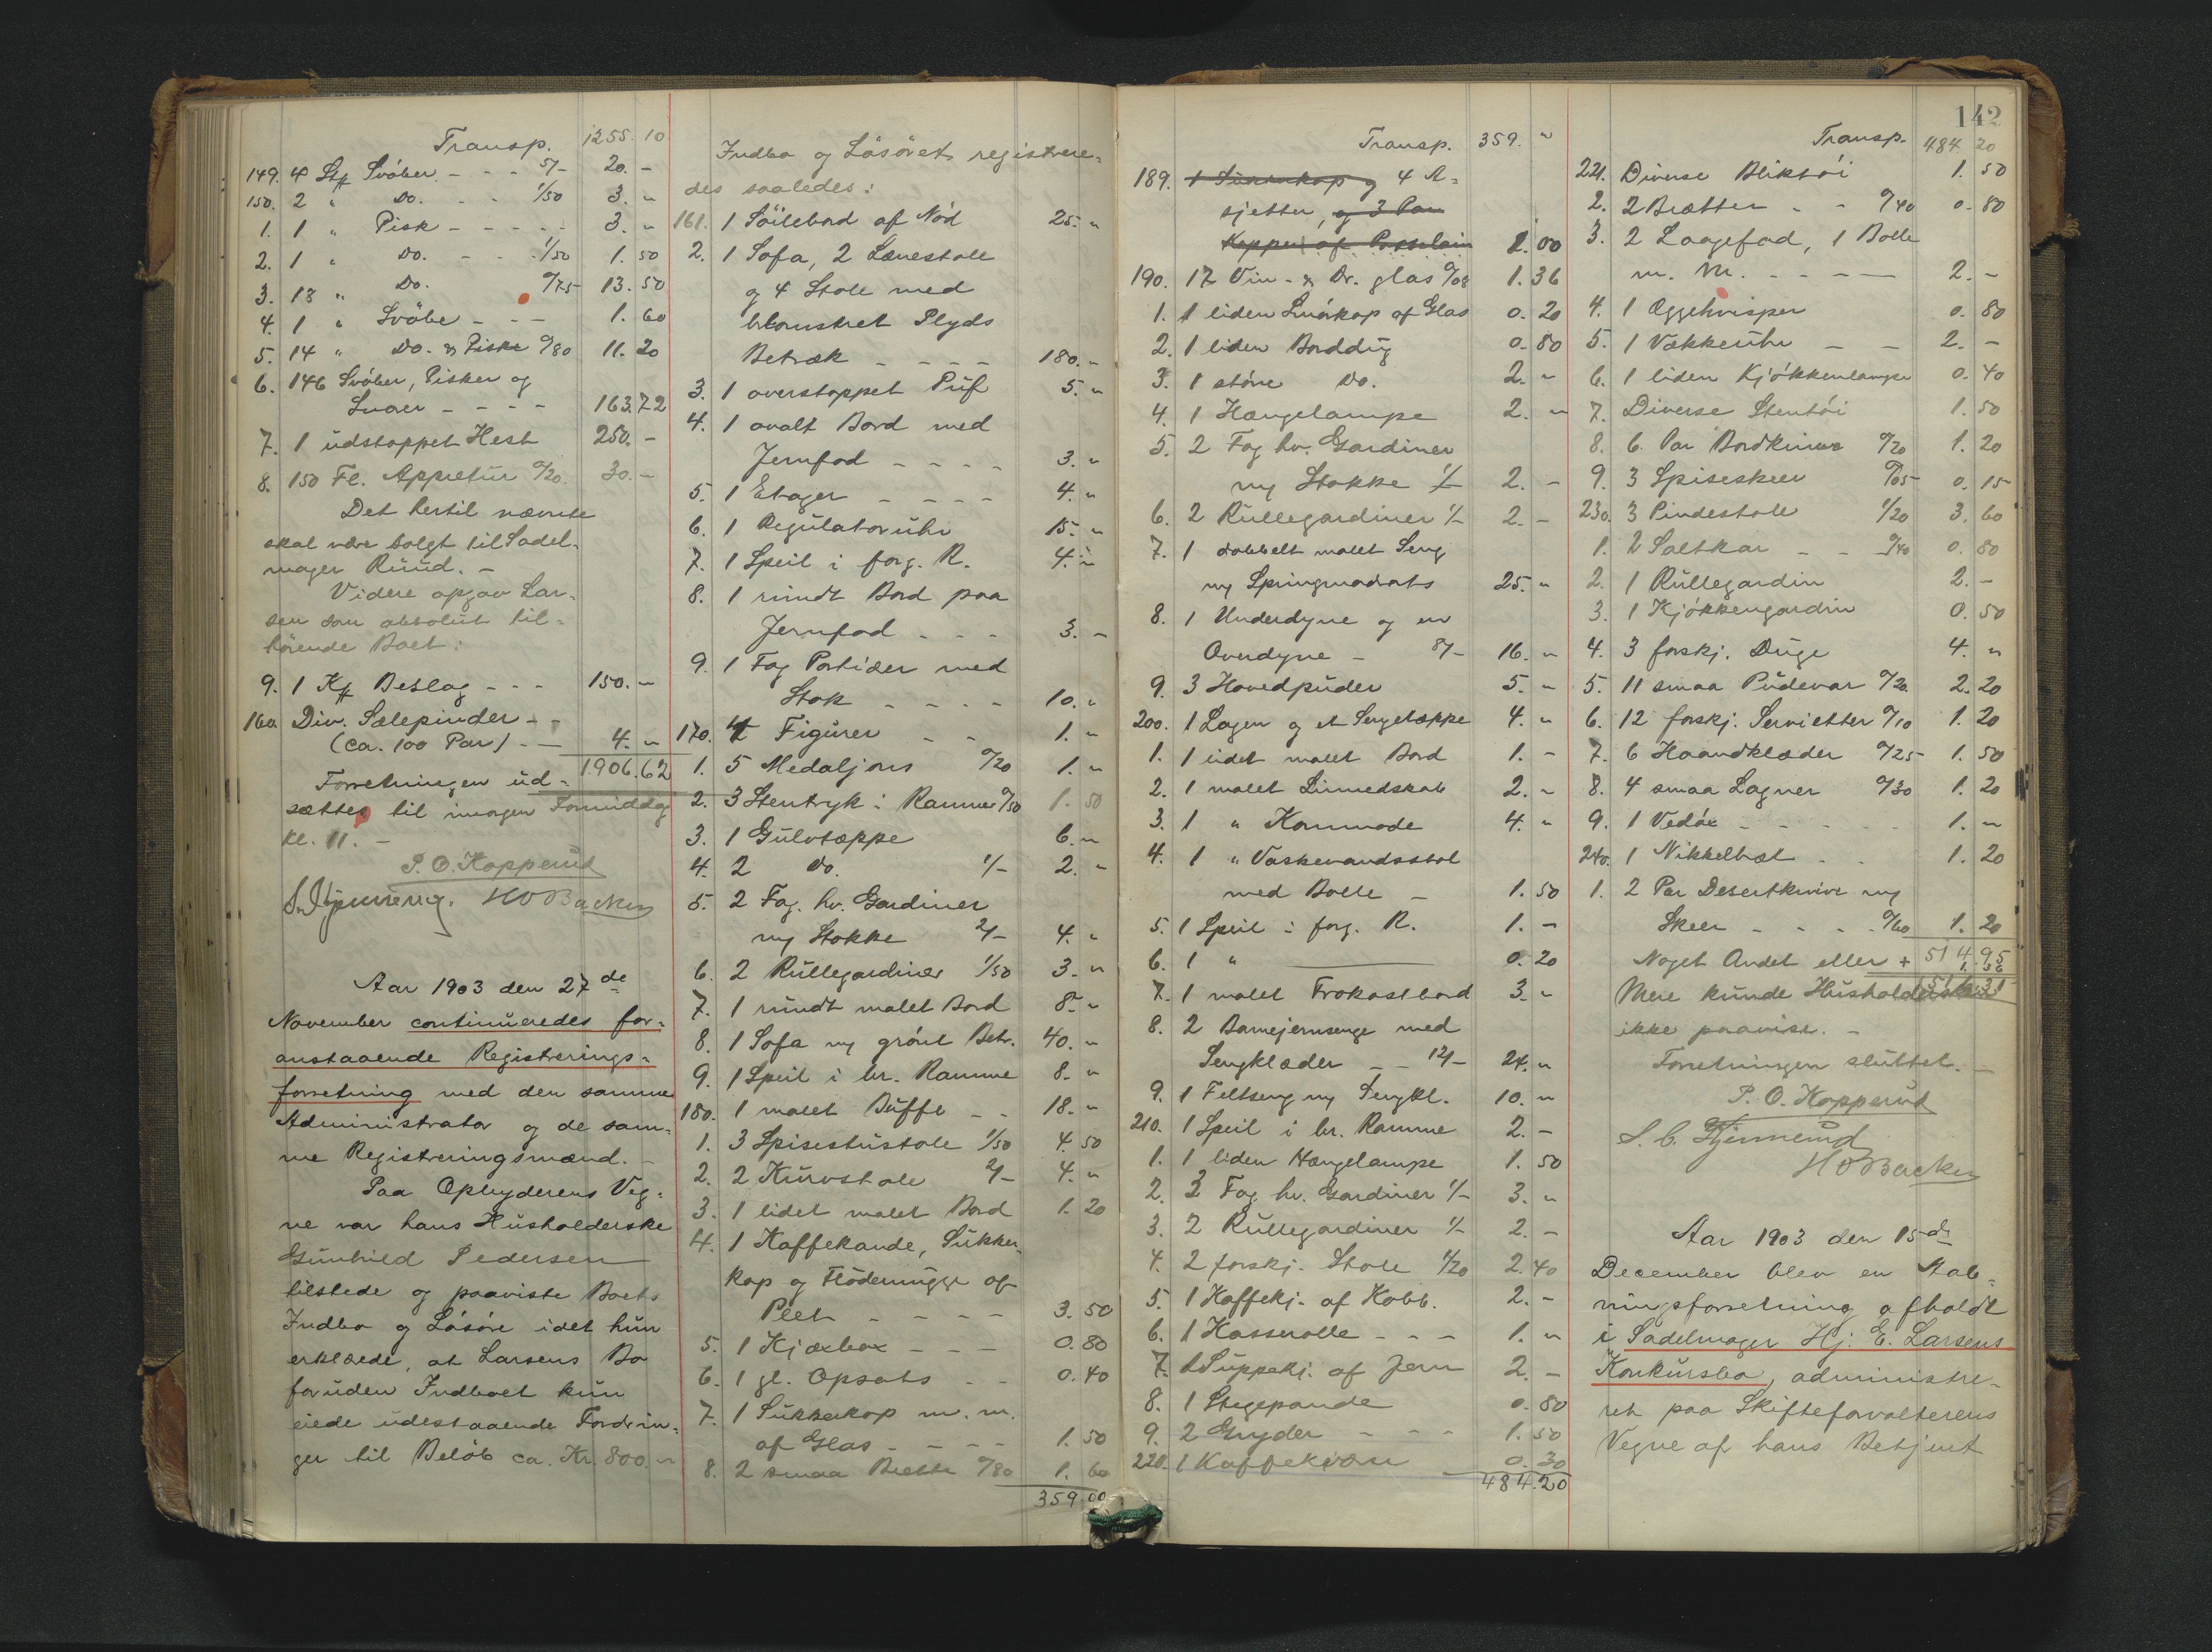 Transp. 1255. 10
149. 4 Stk Svøber - - - 5/- 20. -
150. 2 " Do. - - 1/50 3. "
1. 1 " Pisk - - - - - 3. "
2. 1 " Do. - - - 1/50 1. 50
3. 18 " Do. 0/75 13. 50
4. 1 " Svøbe - - - 1. 60
5. 14 " Do. & Piske 0/80 11. 20
6. 146 Svøber, Pisker og
Snoer - - - - 163.72
7. 1 udstoppet Hest 250. -
8. 150 Fl. Appretur 0/20. 30. -
Det hertil nævnte
skal være solgt til Sadel-
mager Ruud. -
Videre opgav Lar-
sen som absolut til-
hørende Boet:
9. 1 Kf Beslag - - - 150. "
160. Div. Sælepinder - -
(ca. 100 Par) - - 4. "
1906.62
Forretningen ud-
sættes til imorgen Formiddag
Kl. 11. -
P. O. Kopperud
HOBacken
Aar 1903 den 27de
November continueredes for-
anstaaende Registrerings-
forretning med den samme
Administrator og de sam-
me Registreringsmænd. -
Paa Opbyderens Veg-
ne var hans Husholderske
Gunhild Pedersen
tilstede og paaviste Boets
Indbo og Løsøre idet hun
erklæede, at Larsens Bo
foruden Indboet kun
eiede udestaaende Fordrin-
ger til Beløb ca. Kr. 800. "
Indbo og Løsøret registrere-
des saaledes:
161. 1 Söilebord af Nød 25. "
2. 1 Sofa, 2 Lænestole
og 4 Stole med
blomstret Plyds
Betræk - - - - 180. "
3. 1 overstoppet Puf 5. "
4. 1 ovalt Bord med
Jernfod - - - - 3. "
5. 1 Etager - - - - 4. "
6. 1 Regulatoruhr 15. "
7. 1 Speil i forg. R. 4. "
8. 1 rundt Bord paa
Jernfod - - - 3. -
9. 1 Fag Portiéer med
Stok - - - - 10. "
170. 4 Figurer - - 1. "
1. 5 Medaljons 0/20 1. "
2. 3 Stentryk i Ramme 0/50 1. 50
3. 1 Gulvtæppe 6. "
4. 2 do. 1/- 2. "
5. 2 Fag. hv. Gardiner
m/ Stokke 2/- 4. "
6. 2 Rullegardiner 1/50 3. "
7. 1 rundt malet Bord 8. "
8. 1 Sofa m/ grønt Betr. 40. "
9. 1 Speil i br. Ramme 8. "
180. 1 malet Buffe - - 18. "
1. 3 Spisestustole 1/50 4. 50
2. 2 Kurvstole 2/- 4. "
3. 1 lidet malet Bord 1. 20
4. 1 Kaffekande, Sukker-
kop og Flödemugge af
Plet - - - - - 3. 50
5. 1 Kjæxbox - - - 0. 80
6. 1 gl. Opsats - - 0. 40
7. 1 Sukkerkop m. m.
af Glas - - - - 1. 50
8. 2 smaa Brette 0/80 1. 60
359.00
142
Transp. 359. "
189. 4 A-
sjetter, og 3 Par
Kopper af Porselain 1. 00
190. 17 Vin- & Dr. glas 0/08 1. 36
1. 1 liden Smörkop af Glas 0. 20
2. 1 liden Borddug 0. 80
3. 1 større do. 2. "
4. 1 Hængelampe 2. "
5. 2 Fag hv. Gardiner
m/ Stokke 1/- 2. -
6. 2 Rullegardiner 1/- 2. -
7. 1 dobbelt malet Seng
m/ Springmadrats 25. "
8. 1 Underdyne og en
Overdyne - 8/- 16. "
9. 3 Hovedpuder 5. "
200. 1 Lagen og et Sengetæppe 4. "
1. 1 lidet malet Bord 1. -
2. 1 malet Linnedskab 2. "
3. 1 " Kommode 4. "
4. 1 " Vaskevandsstol
med Bolle - 1. 50
5. 1 Speil i forg. R. 1. -
6. 1 " 0. 20
7. 1 malet Frokostbord 3. "
8. 2 Barnejernsenge med
Sengklæder - - 12/- 24. "
9. 1 Feltseng m/ Sengkl. 10. "
210. 1 Speil i br. Ramme 2. -
1. 1 liden Hængelampe 1. 50
2. 3 Fag hv. Gardiner 1/- 3. "
3. 2 Rullegardiner 1/- 2. -
4. 2 forskj. Stole 1/20 2. 40
5. 1 Kaffekj. af Kobb. 2. -
6. 1 Kasserolle - - - 1. "
7. 1 Suppekj. af Jern 2. -
8. 1 Stegepande 0. 80
9. 2 Gryder - - - 1. 50
220. 1 Kaffekværn 0. 30
484.20
Transp. 484. 20
221. Diverse Bliktøi 1. 50
2. 2 Brætter - - 0/40 0. 80
3. 2 Laagefad, 1 Bolle
m. m. - - - - 2. -
4. 1 Æggehvisper 0. 80
5. 1 Vækkeruhr - - 2. -
6. 1 liden Kjøkkenlampe 0. 40
7. Diverse Stentøi 1. 50
8. 6 Par Bordknive 0/20 1. 20
9. 3 Spiseskeer 0/05 0. 15
230. 3 Pindestole 1/20 3. 60
1. 2 Saltkar - - 0/40 0. 80
2. 1 Rullegardin 2. -
3. 1 Kjøkkengardin 0. 50
4. 3 forskj. Duge 4. "
5. 11 smaa Pudevar 0/20. 2. 20
6. 12 forskj. Servietter 0/10 1. 20
7. 6 Haandklæder 0/25 1. 50
8. 4 smaa Lagner 0/30 1. 20
9. 1 Vedøx - - - - - 1. "
240. 1 Nikkelbræt - - 1. 20
1. 2 Par Desertknive m/
Skeer - - - - 0/60 1. 20
514.95
Noget Andet eller +
Mere kunde Husholdersken
ikke paavise. -
Forretningen sluttet. -
P. O. Kopperud
HOBacken
Aar 1903 den 15de
December blev en Stab-
ningsforretning afholdt
i Sadelmager Hj. E. Larsens
Konkursbo, administre-
ret paa Skifteforvalterens
Vegne af hans Betjent